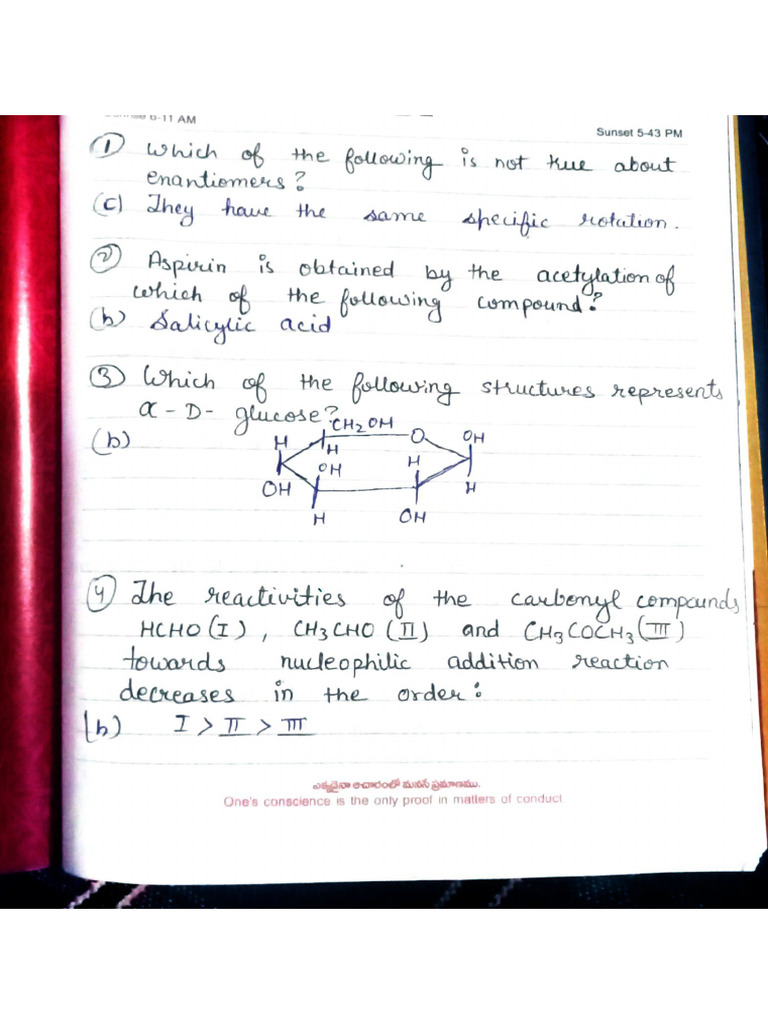 6-11 AM
Sunset 5-43 PM
① Which of the following is not true about
enantiomers?
(c) They have the same specific rotation.
② Aspirin is obtained by the acetylation of
which of the following compound?
(b) Salicylic acid
③ Which of the following structures represents
α-D-glucose?
(b)
CH2OH
H O OH
H
OH H
OH
H
H OH
④ The reactivities of the carbonyl compounds
HCHO (I), CH3CHO (II) and CH3COCH3 (III)
towards nucleophilic addition reaction
decreases in the order:
(b) I > II > III
ఎక్కడైనా ఆచారంలో మనసే ప్రమాణము.
One's conscience is the only proof in matters of conduct